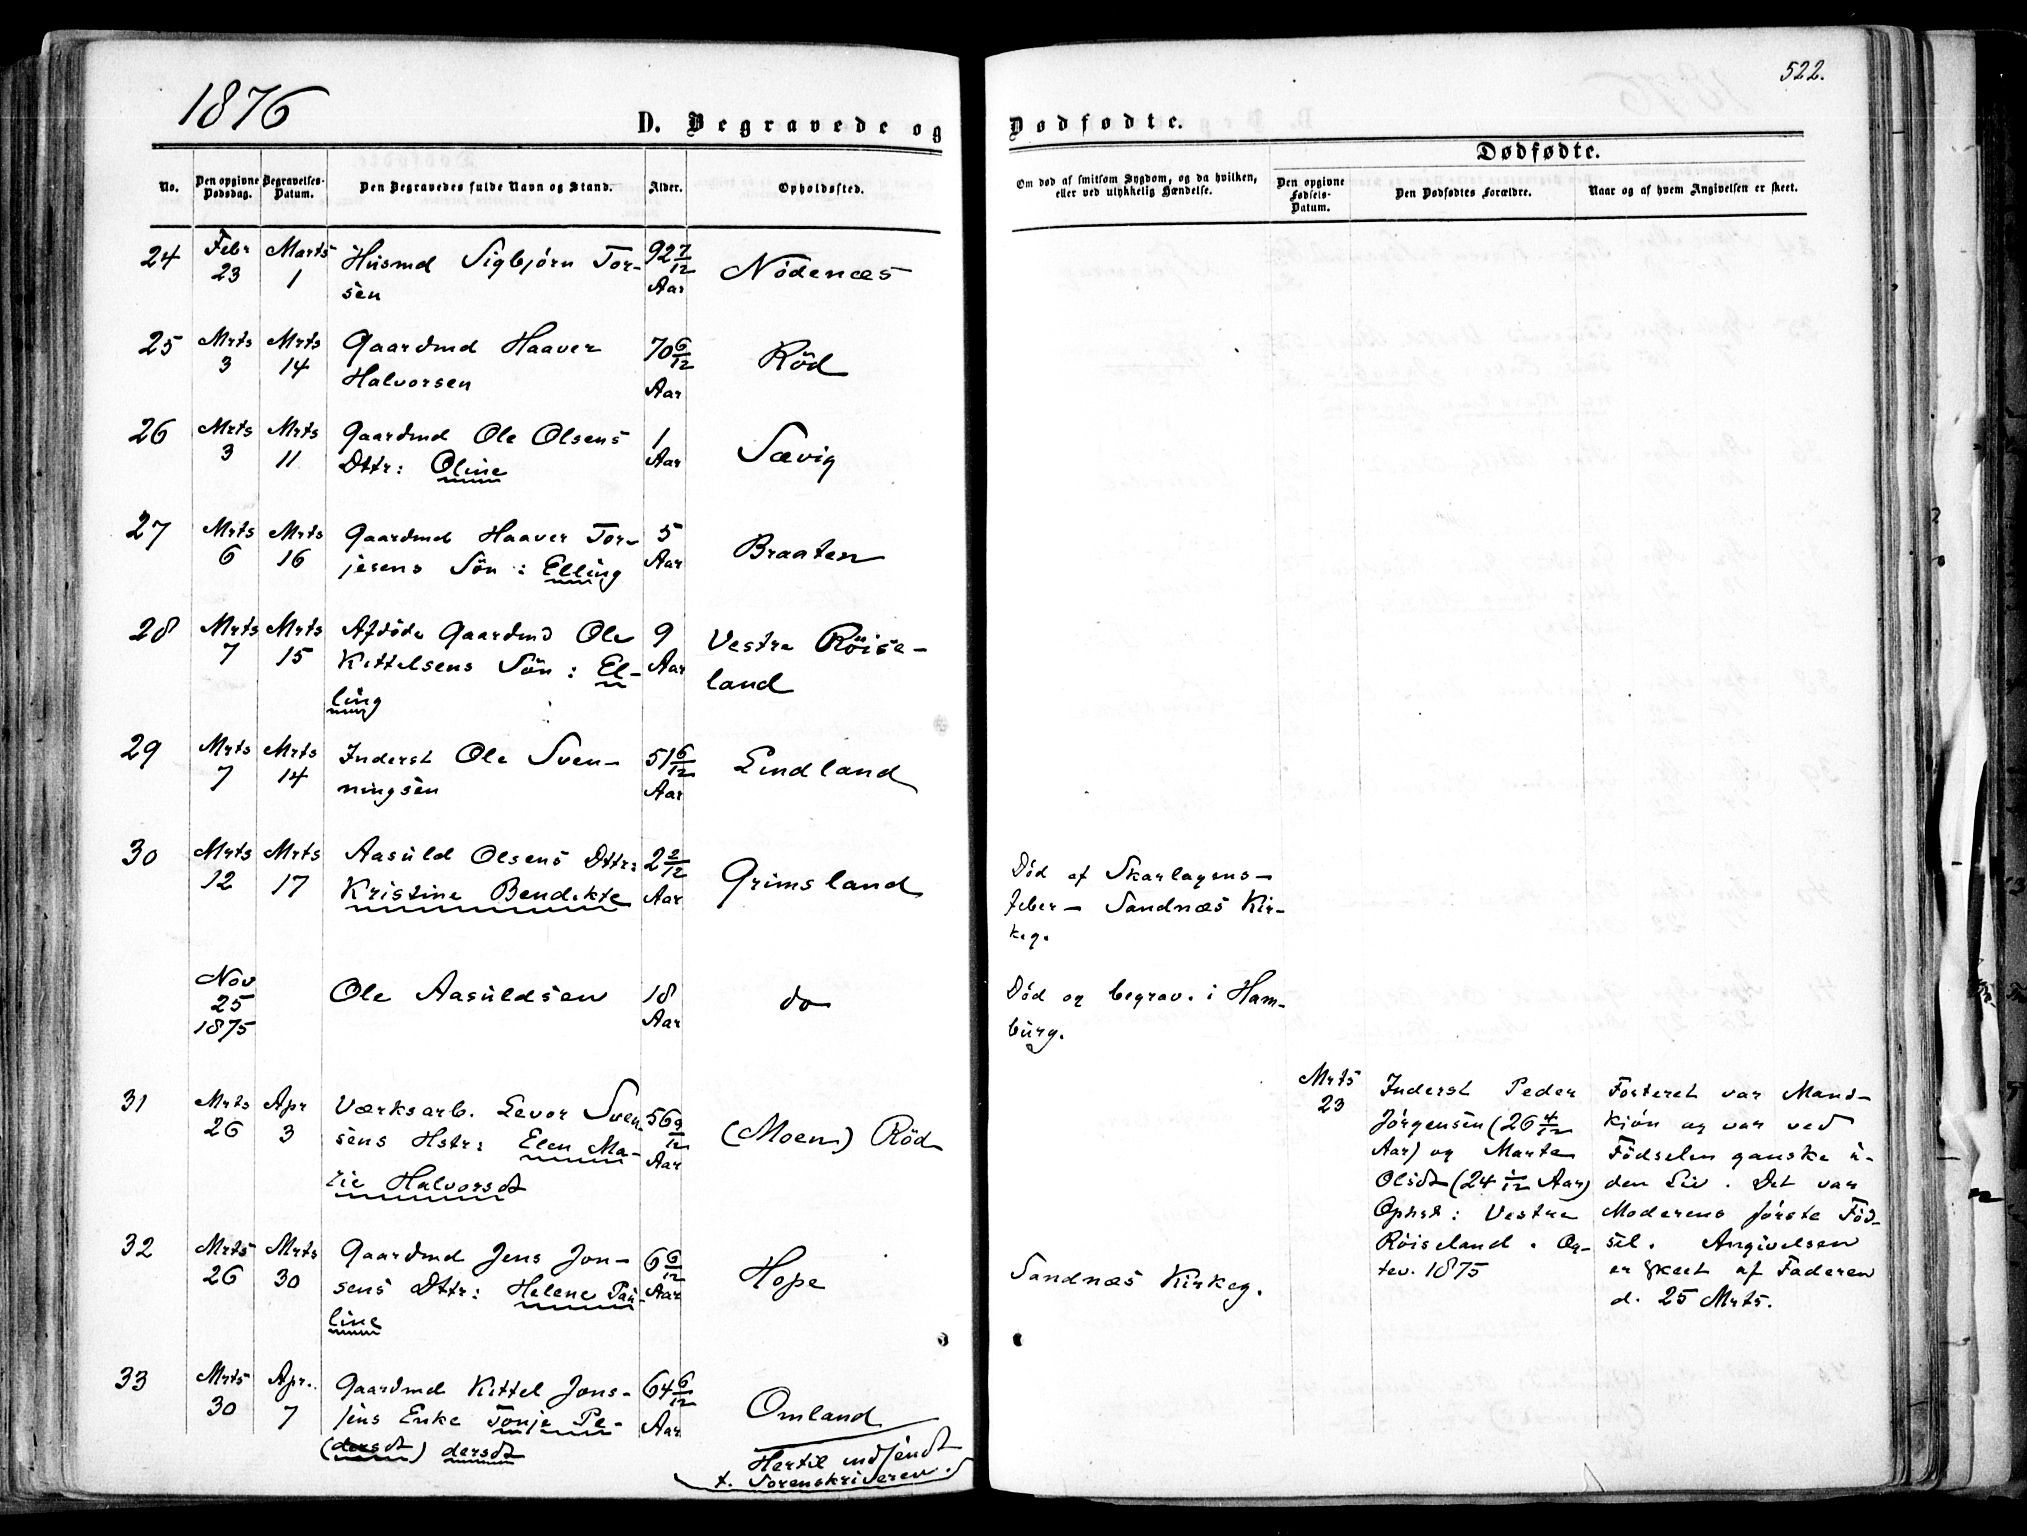 1876
D. Begravede og
No.
Den opgivne Dødsdag.
Begravelses-Datum.
Den Begravedes fulde Navn og Stand.
Alder.
Opholdssted.
24 Febr Marts Husmd Sigbjørn Tor- 92 7/12 Nödenæs
23 1 sen Aar
25 Mrts Mrts Gaardmd Haaver 70 6/12 Röd
3 14 Halvorsen Aar
26 Mrts Mrts Gaardmd Ole Olsens 1 Sævig
3 11 Dttr: Oline Aar
27 Mrts Mrts Gaardmd Haaver Tor- 5 Braaten
6 16 jesens Sön: Elling Aar
28 Mrts Mrts Afdöde Gaardmd Ole 9 Vestre Röise-
7 15 Kittelsens Sön: El- Aar land
ling
29 Mrts Mrts Inderst Ole Sven- 51 6/12 Lindland
7 14 ningsen Aar
30 Mrts Mrts Aasuld Olsens Dttr: 2 2/12 Grimsland
12 17 Kristine Bendikte Aar
Nov Ole Aasuldsen 18 do
25 Aar
1875
31 Mrts Apr Værksarb. Levor Sven- 56 9/12 (Moen) Röd
26 3 sens Hstr: Elen Ma- Aar
rie Halvorsdt
32 Mrts Mrts Gaardmd Jens Jon- 6 6/12 Hope
26 30 sens Dttr: Helene Pau- Aar
line
33 Mrts Apr. Gaardmd Kittel Jons- 64 6/12 Omland
30 7 sens Enke Tonje Pe- Aar
(dersdt) dersdt
Hertil indsendt
t. Sorenskriveren.
522.
Dødfødte.
Om død af smitsom Sygdom, og da hvilken,
eller ved ulykkelig Hændelse.
Dødfødte.
Den opgivne Fødsels-Datum.
Den Dødfødtes Forældre.
Naar og af hvem Angivelsen er skeet.
Död af Skarlagens-
feber - Sandnæs Kir-
keg.
Död og begrav. i Ham-
burg.
Mrts
23
Inderst Peder
Jörgensen (26 4/12
Aar) og Marte
Olsdt (24 1/12 Aar)
Ophst: Vestre
Röiseland. Æg-
tev. 1875
Fosteret var Mand-
kjön og var ved
Födselen ganske u-
den Liv. Det var
Moderens förste Föd-
sel. Angivelsen
er skeet af Faderen
d. 25 Mrts.
Sandnæs Kirkeg.